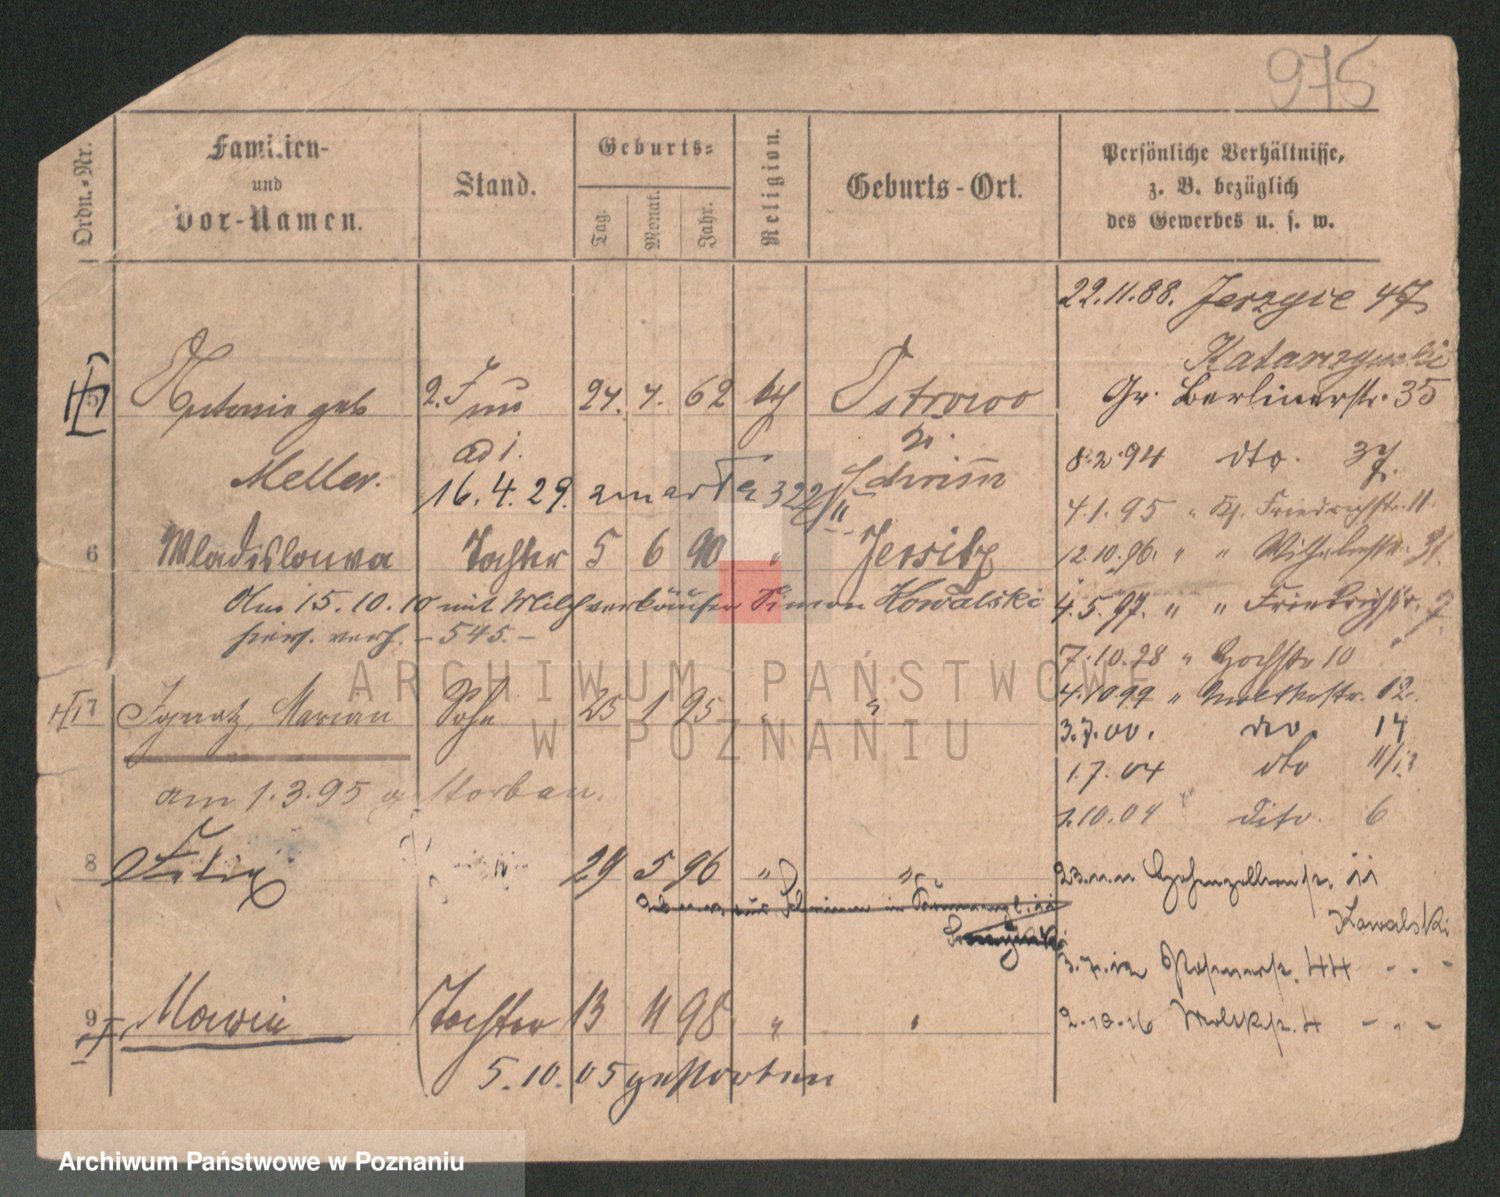 975
Ordn.-Nr.
Familien-
und
Vor-Namen.
Stand.
Geburts-
Tag.
Monat.
Jahr.
Religion.
Geburts-Ort.
Persönliche Verhältnisse,
z. B. bezüglich
des Gewerbes u. s. w.
22.11.88. Jerzyce 47
Katarzynski
Antonie geb 2. Frau 24. 4. 62 kth Ostrowo Gr. Berlinerstr. 35
Meller. ad 1. Kr. Schrimm
8.2.94 dto. 37
16.4.29. zmarła 322/II
4.1.95 " Friedrichstr. 11.
6 Wladislouwa Tochter 5 6 90 " Jersitz
12.10.96. " " Wilhelmstr.
Am 15.10.10 mit Milchverkäufer Simon Kowalski
hier. verh. - 545. -
4.5.97. " " Friedrichstr.
7.10.98 " Hochstr 10
7 Ignatz, Marian Sohn 25 1 95 " "
4.10.99 " Moltkestr. 12.
3.7.00. dto. 14
am 1.3.95 gestorben.
1.7.04 dto 11/13
1.10.04 dito. 6
8 Felix 29 5 96 " "
Hohenzollernstr. 11
Kowalski
3.7.12 Posenerstr. 44 - " -
9 Marie Tochter 13 11 98 " "
2.10.16 Moltkestr. 4 - " -
5.10.05 gestorben
ARCHIWUM PAŃSTWOWE
W POZNANIU
Archiwum Państwowe w Poznaniu